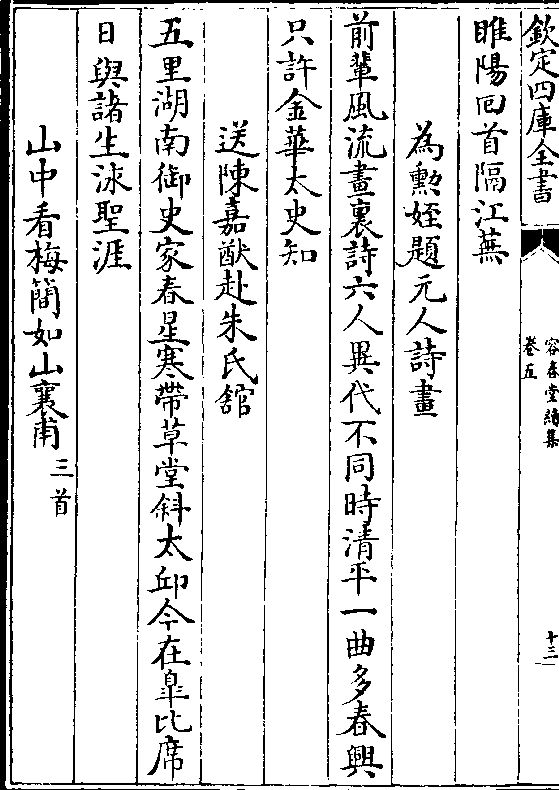 欽定四庫全書
容春堂續集
卷五
十三
睢陽回首隔江蕪
為勲姪題元人詩畫
前輩風流畫裏詩六人異代不同時清平一曲多春興
只許金華太史知
送陳嘉猷赴朱氏舘
五里湖南御史家春星寒帶草堂斜太邱今在臯比席
日與諸生泳聖涯
山中看梅簡如山襄甫三首